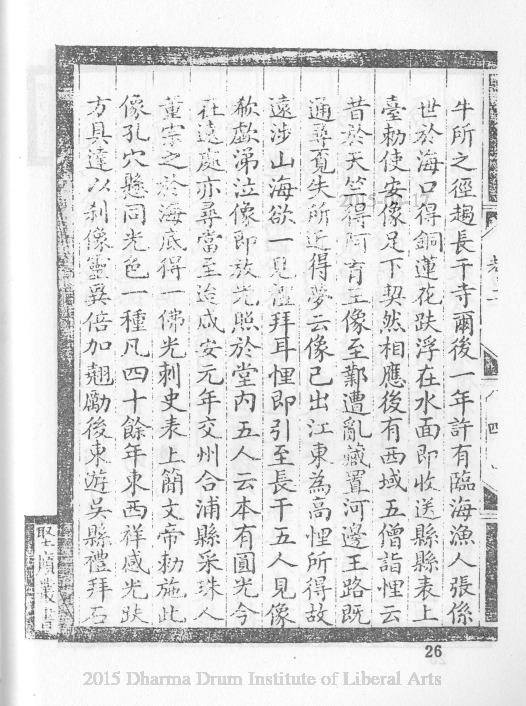 牛所之徑趨長干寺爾後一年許有臨海漁人張係
世於海口得銅蓮花趺浮在水面即收送縣縣表上
臺勅使安像足下契然相應後有西域五僧詣悝云
昔於天竺得阿育王像至鄴遭亂藏置河邊王路既
通尋覓失所近得夢云像已出江東為高悝所得故
遠涉山海欲一見禮拜耳悝即引至長干五人見像
欷歔涕泣像即放光照於堂內五人云本有圓光今
在遠處亦尋當至迨咸安元年交州合浦縣采珠人
董宗之於海底得一佛光刺史表上簡文帝勅施此
像孔穴懸同光色一種凡四十餘年東西祥感光趺
方具達以刹像靈異倍加翹勵後東遊吳縣禮拜石
聖
叢書
26
2015 Dharma Drum Institute of Liberal Arts